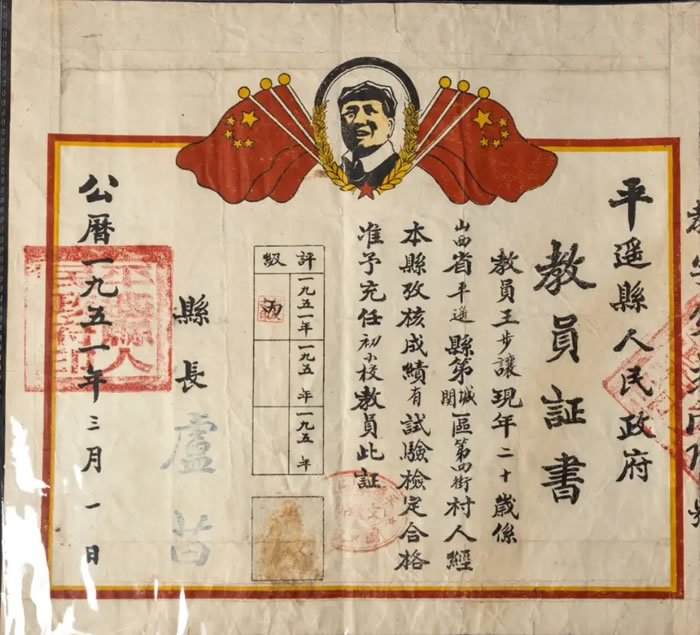 平遥縣人民政府
教員証書
教員王步讓現年二十歲係
山西省平遥縣第城關區第四街村人經
本縣攷核成績有試驗檢定合格
准予充任初小校教員此証
評級
一九五一年 丙
一九五 年
一九五 年
縣長 盧苗
公曆一九五一年三月一日